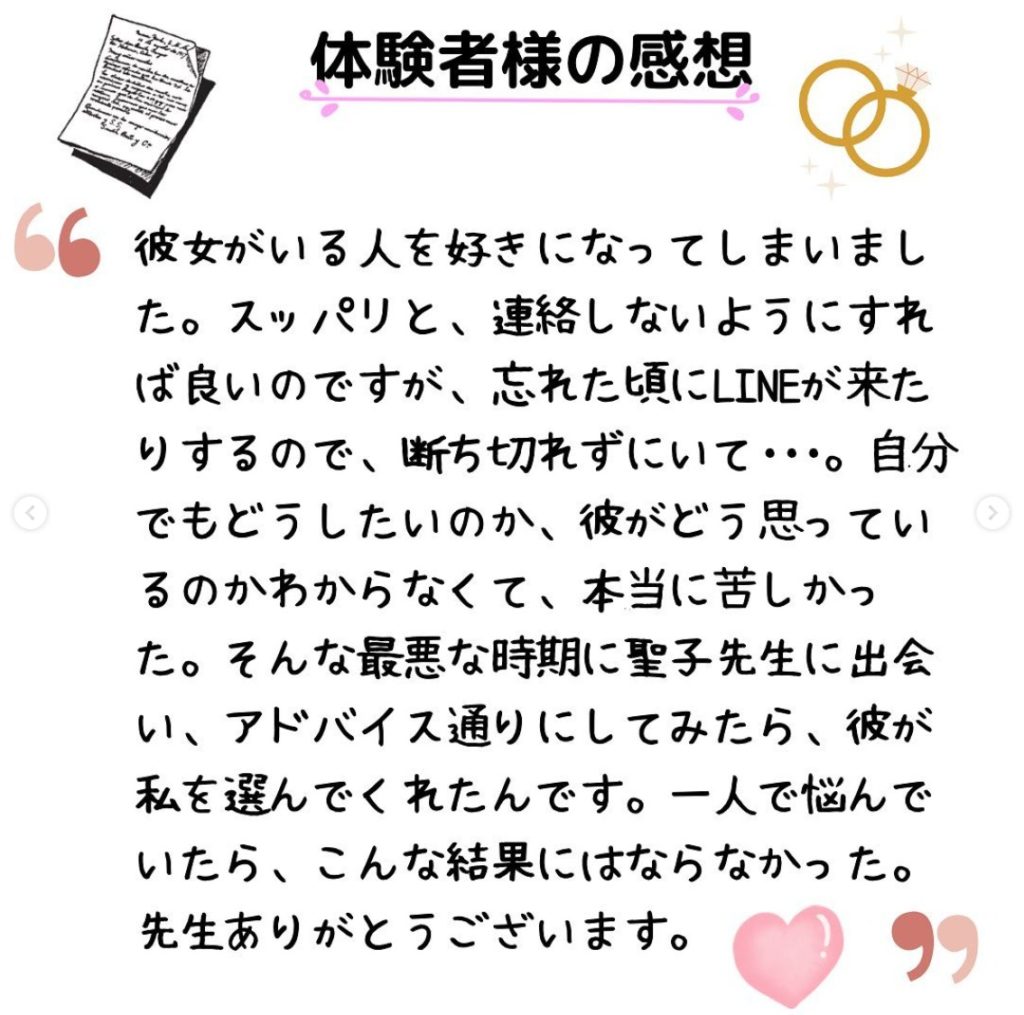 体験者様の感想
彼女がいる人を好きになってしまいまし
た。スッパリと、連絡しないようにすれ
ば良いのですが、忘れた頃にLINEが来た
りするので、断ち切れずにいて・・・。自分
でもどうしたいのか、彼がどう思ってい
るのかわからなくて、本当に苦しかっ
た。そんな最悪な時期に聖子先生に出会
い、アドバイス通りにしてみたら、彼が
私を選んでくれたんです。一人で悩んで
いたら、こんな結果にはならなかった。
先生ありがとうございます。